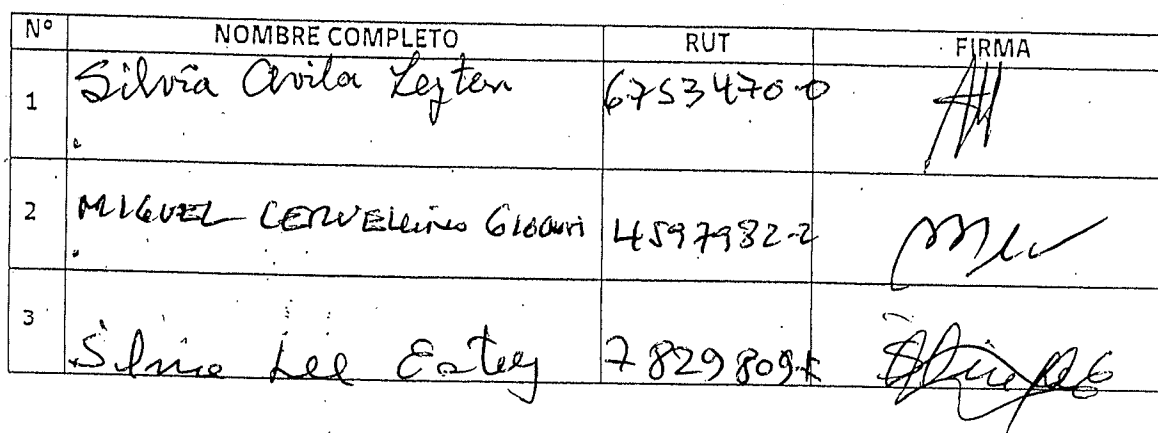 Nº NOMBRE COMPLETO RUT FIRMA
1 Silvia Avila Lezten 6753470-0
2 MIGUEL CERVELLINO GIOANI 4597982-2
3 Silvia Lee Estey 7829809-